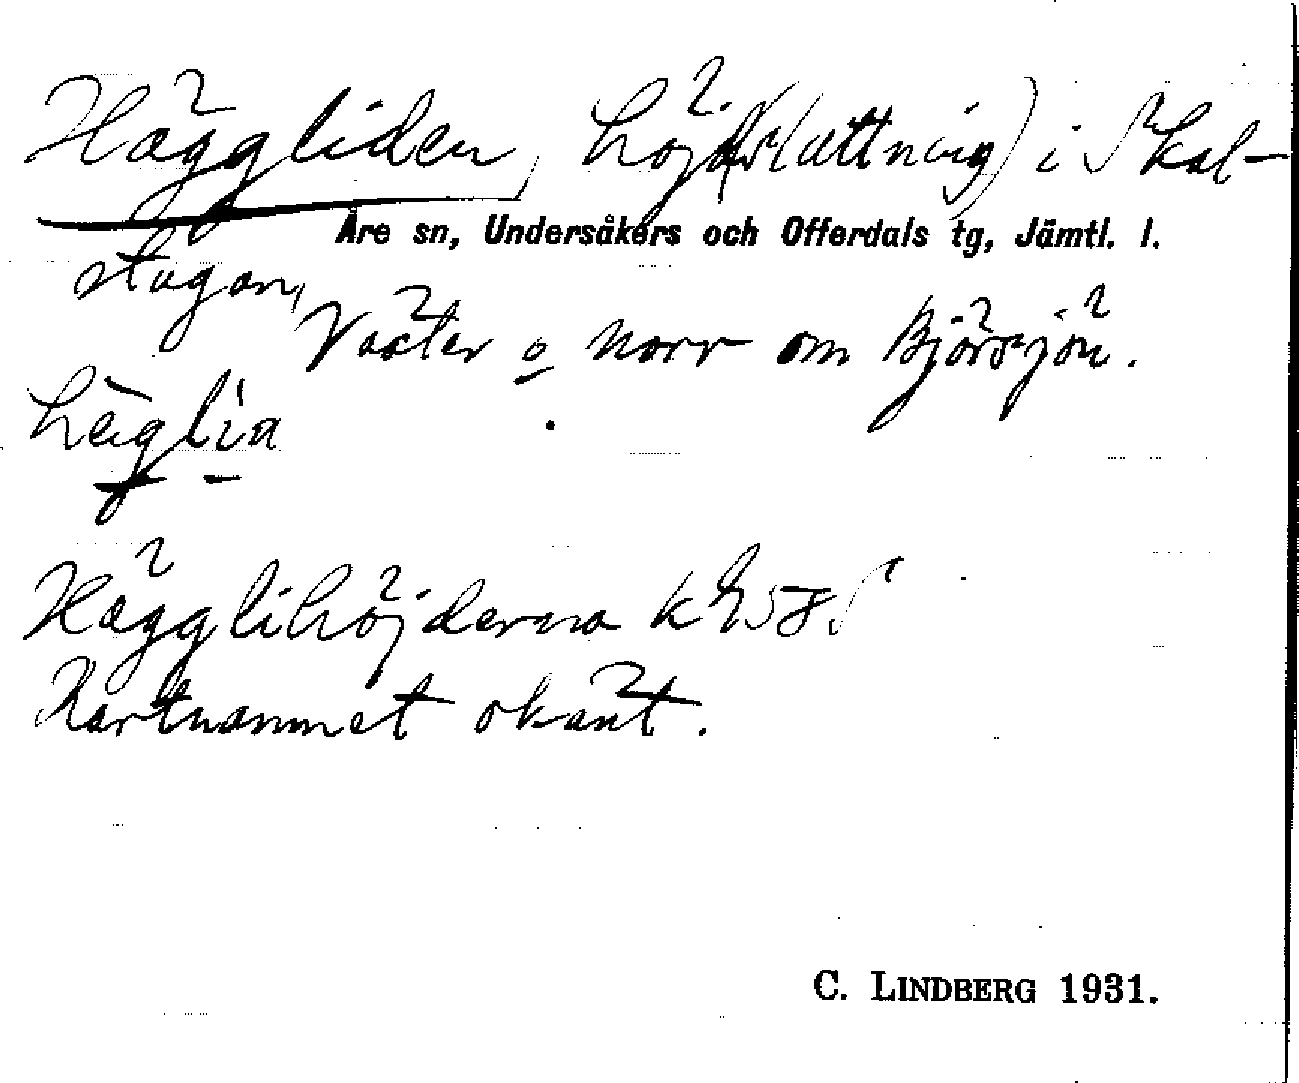 Häggliden, höjd (sluttning) i Skal-
Åre sn, Undersåkers och Offerdals tg, Jämtl. l.
stugan,
Väster o norr om Björsjön.
hèglìa
Hägglihöjderna k 58
Kartnamnet okänt.
C. LINDBERG 1931.